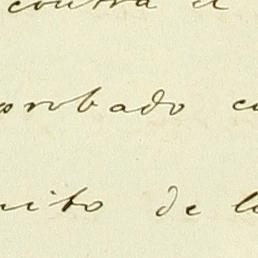 contra el
probado co
nito de lo